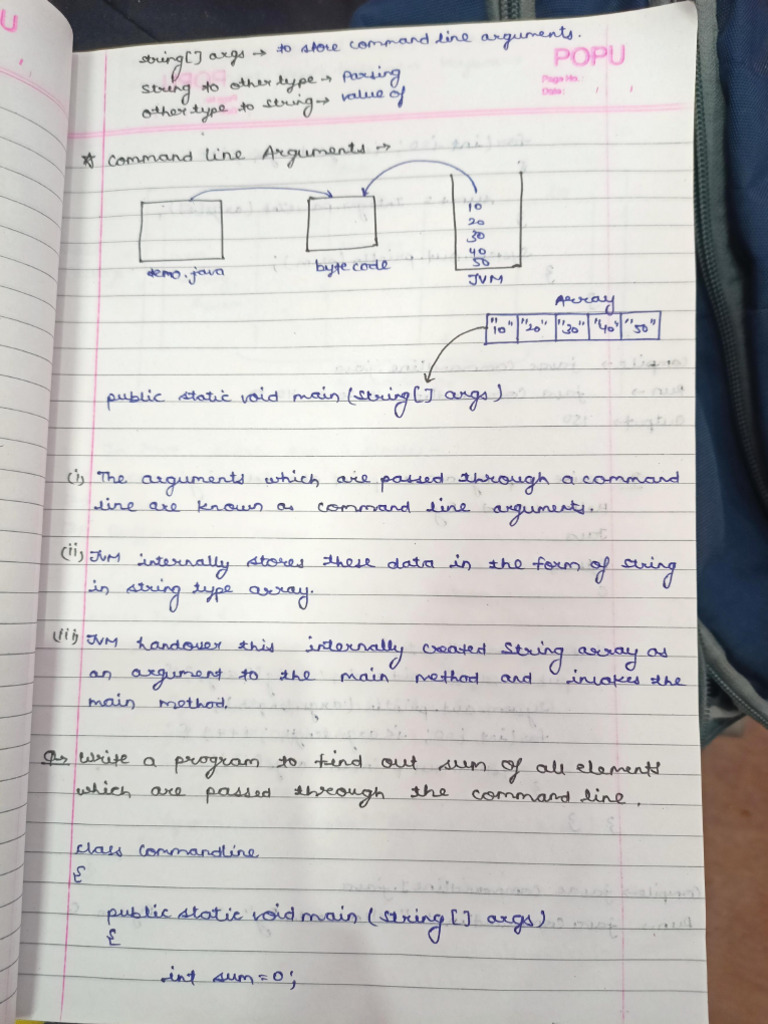 string[] args → to store command line arguments.
string to other type → Parsing
other type to string → value of
POPU
Page No. :
Date: / /
* Command Line Arguments →
10
20
30
40
50
demo.java
byte code
JVM
Array
"10" "20" "30" "40" "50"
public static void main (string[] args)
(i) The arguments which are passed through a command
line are known as command line arguments.
(ii) JVM internally stores these data in the form of string
in string type array.
(iii) JVM handover this internally created string array as
an argument to the main method and invokes the
main method.
Q: Write a program to find out sum of all elements
which are passed through the command line.
class commandline
{
public static void main (string [] args)
{
int sum = 0;